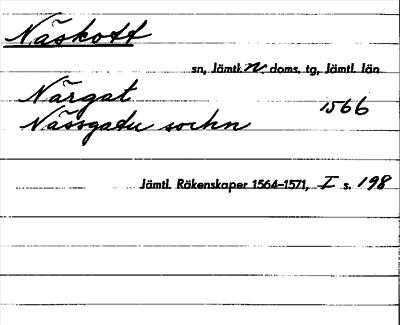 Näskott
sn, Jämtl. n. doms. tg, Jämtl. län
Närgat 1566
Nässgatu sockn
Jämtl. Räkenskaper 1564–1571, I s. 198